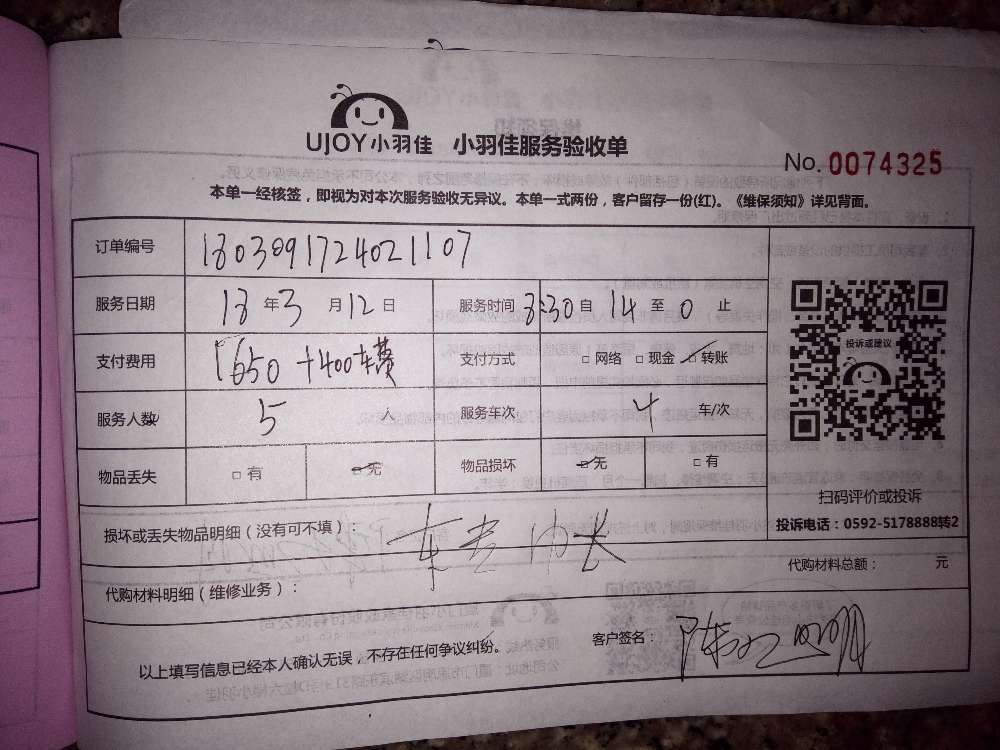 UJOY小羽佳 小羽佳服务验收单
No. 0074325
本单一经核签，即视为对本次服务验收无异议。本单一式两份，客户留存一份(红)。《维保须知》详见背面。
订单编号 180309172402 1107
服务日期 18 年 3 月 12 日 服务时间 8:30 自 14 至 0 止
支付费用 1650 +400车费 支付方式 □ 网络 □ 现金 □ 转账
服务人数 5 人 服务车次 4 车/次
物品丢失 □ 有 □ 无 物品损坏 □ 无 □ 有
投诉或建议
扫码评价或投诉
投诉电话：0592-5178888转2
损坏或丢失物品明细（没有可不填）：
代购材料明细（维修业务）：
代购材料总额： 元
以上填写信息已经本人确认无误，不存在任何争议纠纷。
客户签名：